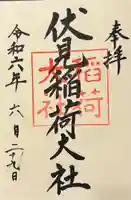 奉拝
伏見稲荷大社
稲荷大社
令和六年 六月二十九日